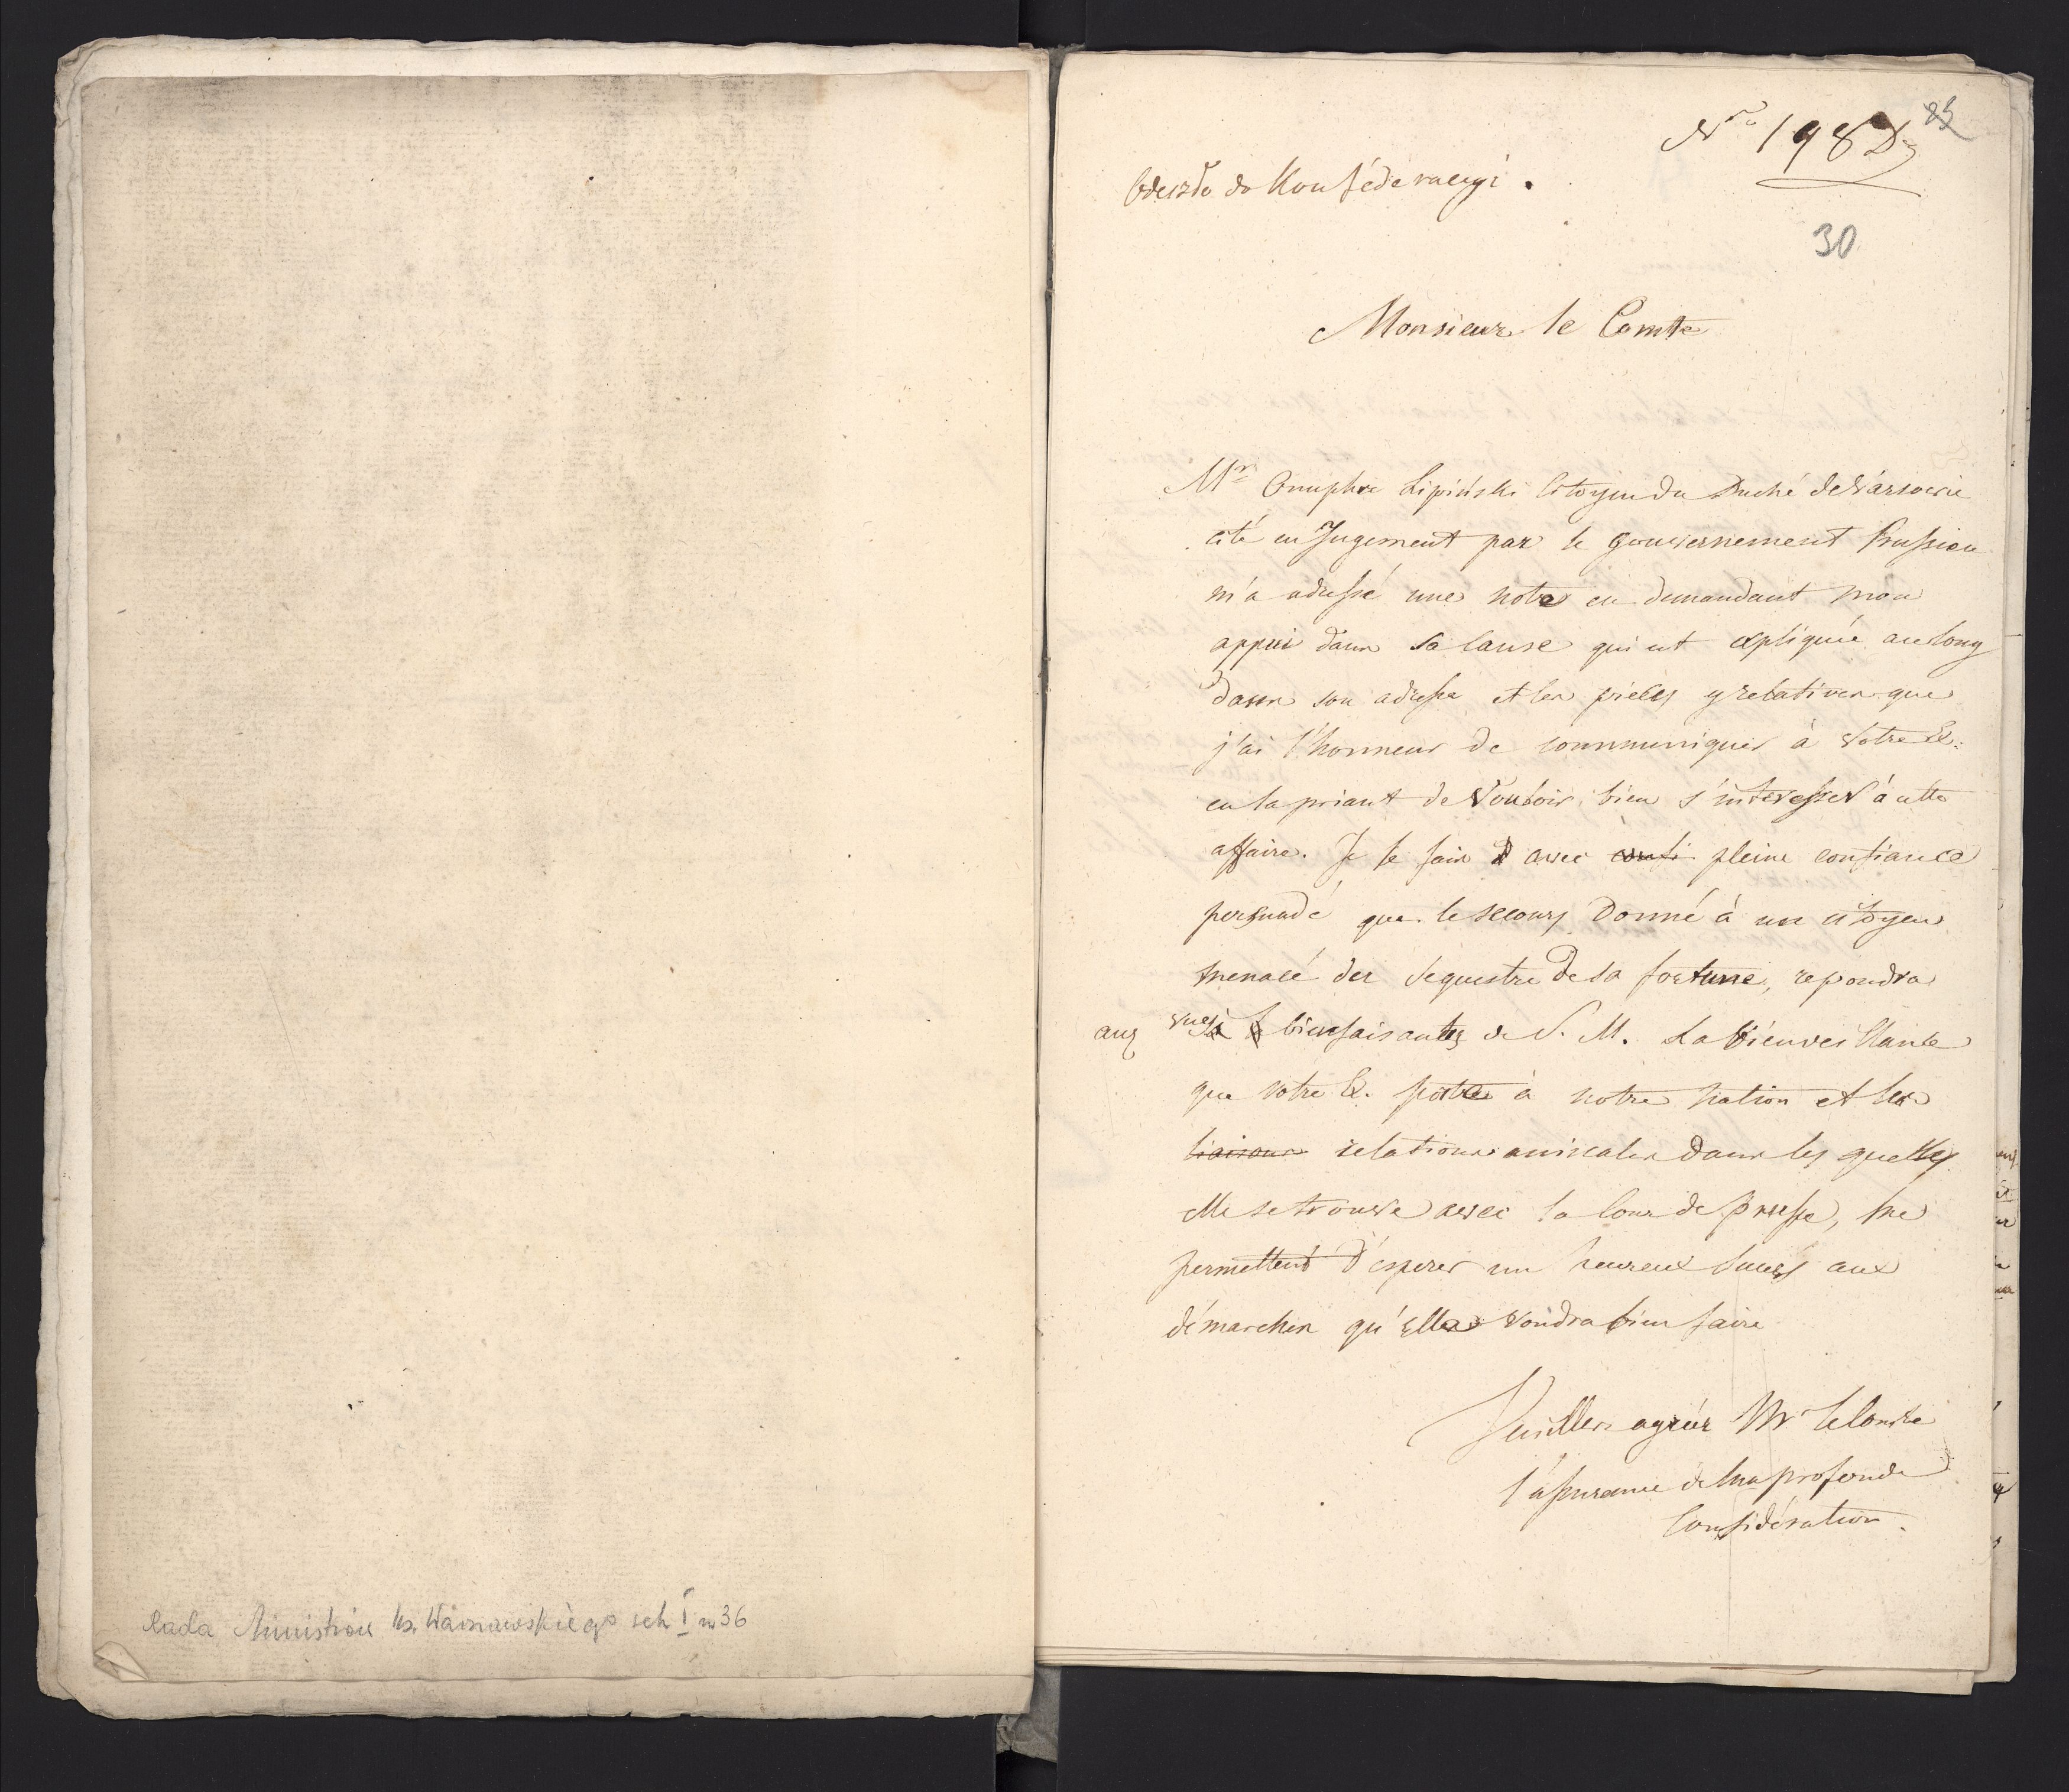 Rada Ministrów Ks. Warszawskiego seh I nr 36
Nro 198 D
85
Odeszło do Konféderacyi.
30
Monsieur le Comte
Mr Onuphre Lipiński Citoyen du Duché de Varsovie
cité en Jugement par le gouvernement Prussien
m'a adressé une note en demandant mon
appui dans sa cause qui est expliquée au long
dans son adresse et les pieces y relatives que
j'ai l'honneur de communiquer à Votre Ex:
en la priant de Vouloir bien s'interesser à cette
affaire. Je le fais avec confi pleine confiance
persuadé que le secours Donné à un citoyen
menacé der Sequestre de sa fortune, repondra
aux vues bienfaisantes de S. M. La bienveillance
que votre Ex. porte à notre nation et les
liaisons relations amicales dans les quelles
elle se trouve avec la Cour de Prusse, me
permettent d'esperer un heureux succes aux
démarches qu'Elle voudra bien faire
Veuillez agréer Mr le Comte
l'assurance de ma profonde
Considération.